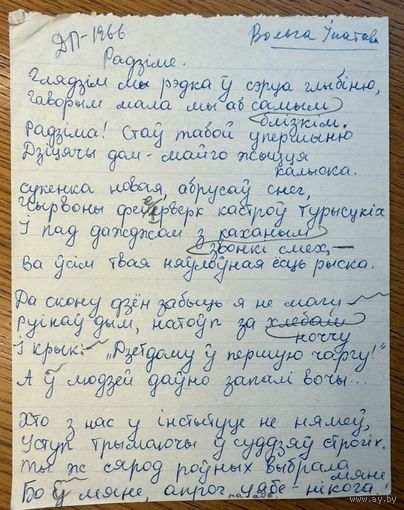 ДП-1966
Вольга Іпатава
Радзіме.
Глядзім мы рэдка ў сэрца глыбіню,
Гаворым мала мы аб самым
блізкім.
Радзіма! Стаў табой упершыню
Дзіцячы дом - майго жыцця
калыска.
Сукенка новая, абрусаў снег,
Чырвоны феерверк кастроў турысцкіх
І пад дажджом з каханым
звонкі смех, -
Ва ўсім твая няўлоўная ёсць рыска.
Да скону дзён забыць я не магу
Руінаў дым, натоўп за хлебам
ноччу
І крык: "Дзетдому ў першую чаргу!"
А ў людзей даўно запалі вочы...
Хто з нас у інстытуце не нямеў,
Уступ трымаючы ў суддзяў строгіх.
Ты ж сярод роўных выбрала
мяне,
Бо ў мяне, апроч цябе - нікога.
av.by